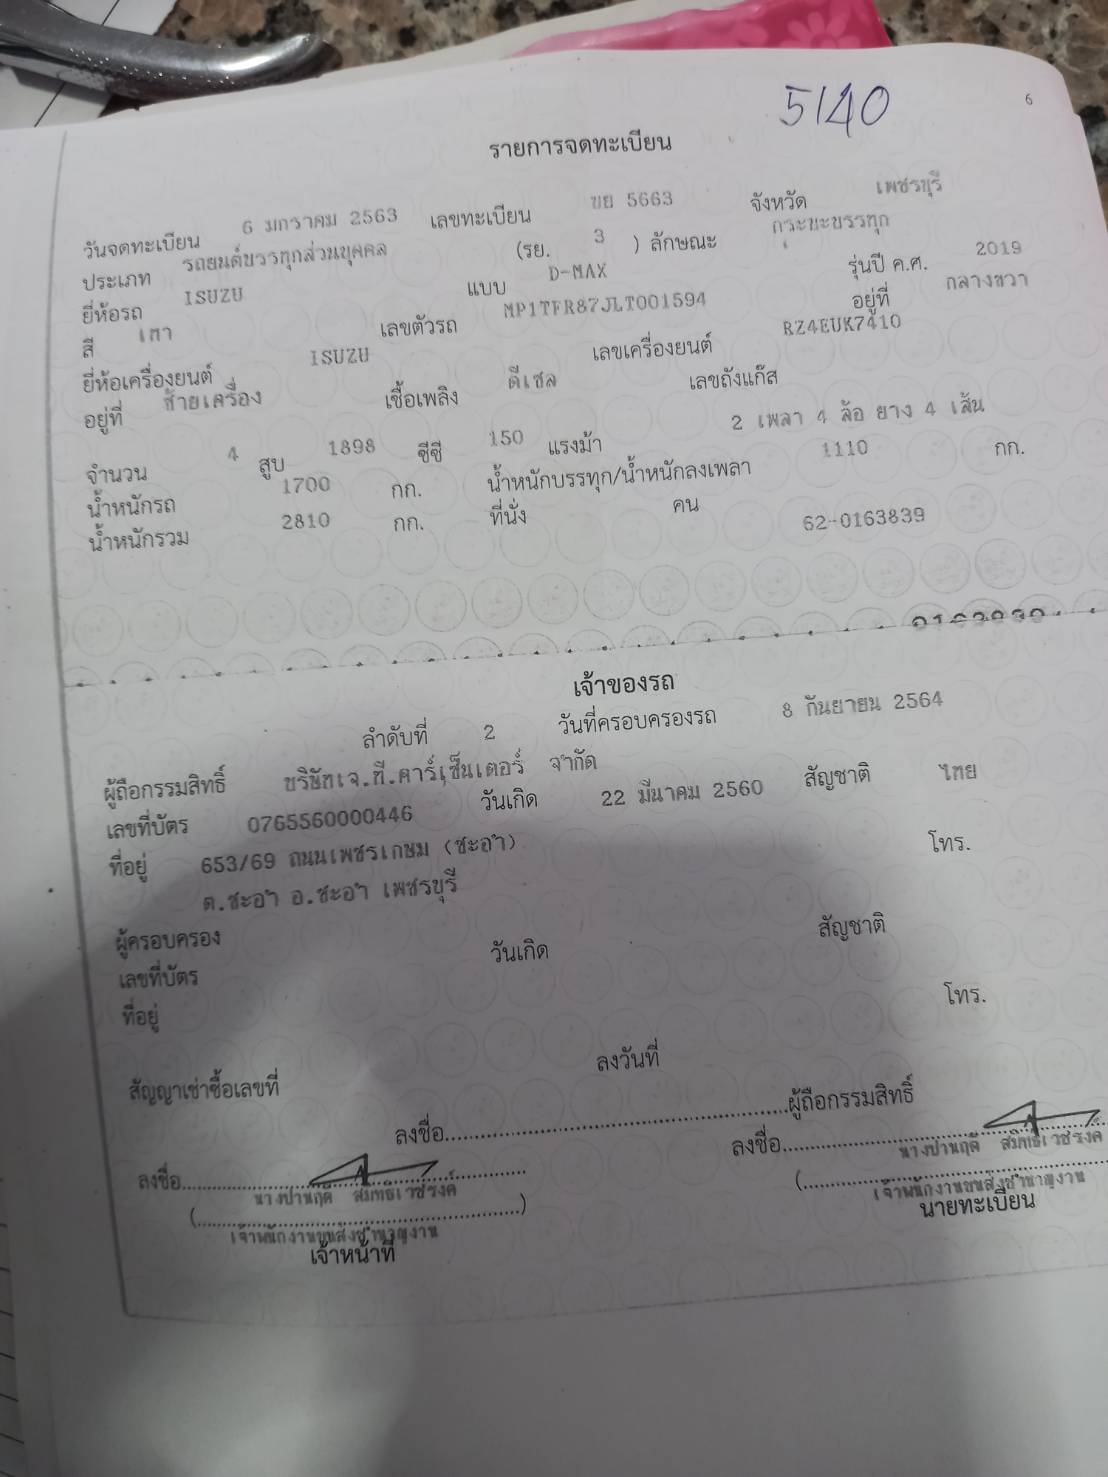 5140
6
รายการจดทะเบียน
วันจดทะเบียน 6 มกราคม 2563 เลขทะเบียน ขย 5663 จังหวัด เพชรบุรี
ประเภท รถยนต์บรรทุกส่วนบุคคล (รย. 3 ) ลักษณะ กระบะบรรทุก
ยี่ห้อรถ ISUZU แบบ D-MAX รุ่นปี ค.ศ. 2019
สี เทา เลขตัวรถ MP1TFR87JLT001594 อยู่ที่ กลางขวา
ยี่ห้อเครื่องยนต์ ISUZU เลขเครื่องยนต์ RZ4EUK7410
อยู่ที่ ซ้ายเครื่อง เชื้อเพลิง ดีเซล เลขถังแก๊ส
จำนวน 4 สูบ 1898 ซีซี 150 แรงม้า 2 เพลา 4 ล้อ ยาง 4 เส้น
น้ำหนักรถ 1700 กก. น้ำหนักบรรทุก/น้ำหนักลงเพลา 1110 กก.
น้ำหนักรวม 2810 กก. ที่นั่ง คน
62-0163839
เจ้าของรถ
ลำดับที่ 2 วันที่ครอบครองรถ 8 กันยายน 2564
ผู้ถือกรรมสิทธิ์ บริษัทเจ.ที.คาร์เซ็นเตอร์ จำกัด
เลขที่บัตร 0765560000446 วันเกิด 22 มีนาคม 2560 สัญชาติ ไทย
ที่อยู่ 653/69 ถนนเพชรเกษม (ชะอำ) โทร.
ต.ชะอำ อ.ชะอำ เพชรบุรี
ผู้ครอบครอง
เลขที่บัตร วันเกิด สัญชาติ
ที่อยู่ โทร.
สัญญาเช่าซื้อเลขที่ ลงวันที่
ลงชื่อ ผู้ถือกรรมสิทธิ์
ลงชื่อ ลงชื่อ
นางปานฤดี สมิทธิเวชรงค์ นางปานฤดี สมิทธิเวชรงค์
เจ้าพนักงานขนส่งชำนาญงาน เจ้าพนักงานขนส่งชำนาญงาน
เจ้าหน้าที่ นายทะเบียน